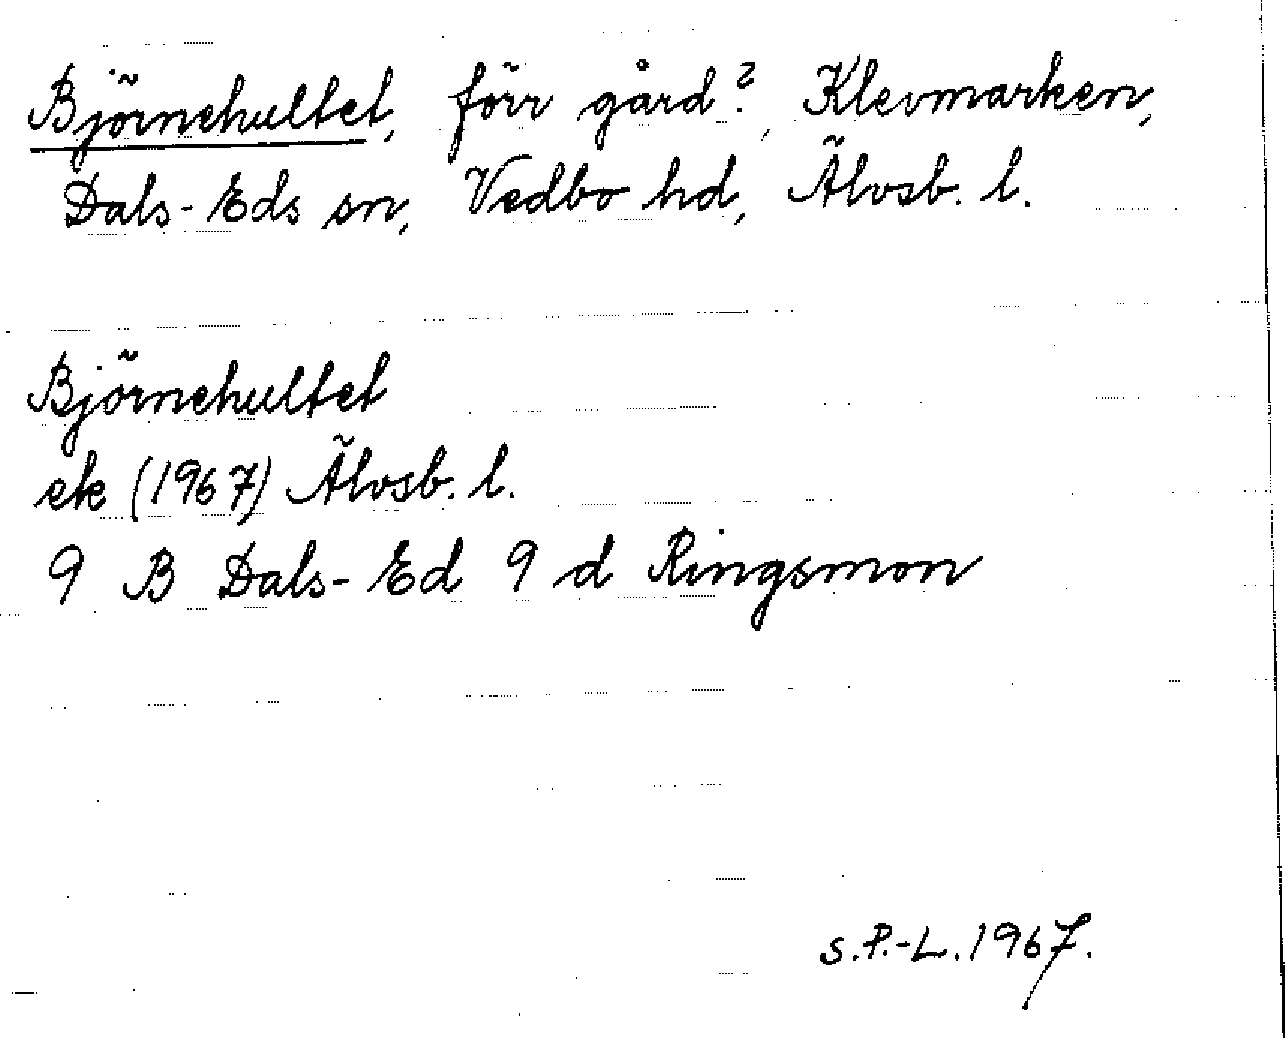 Björnehultet, förr gård?, Klevmarken,
Dals-Eds sn, Vedbo hd, Älvsb. l.
Björnehultet
ek (1967) Älvsb. l.
9 B Dals-Ed 9 d Ringsmon
S.P.-L. 1967.